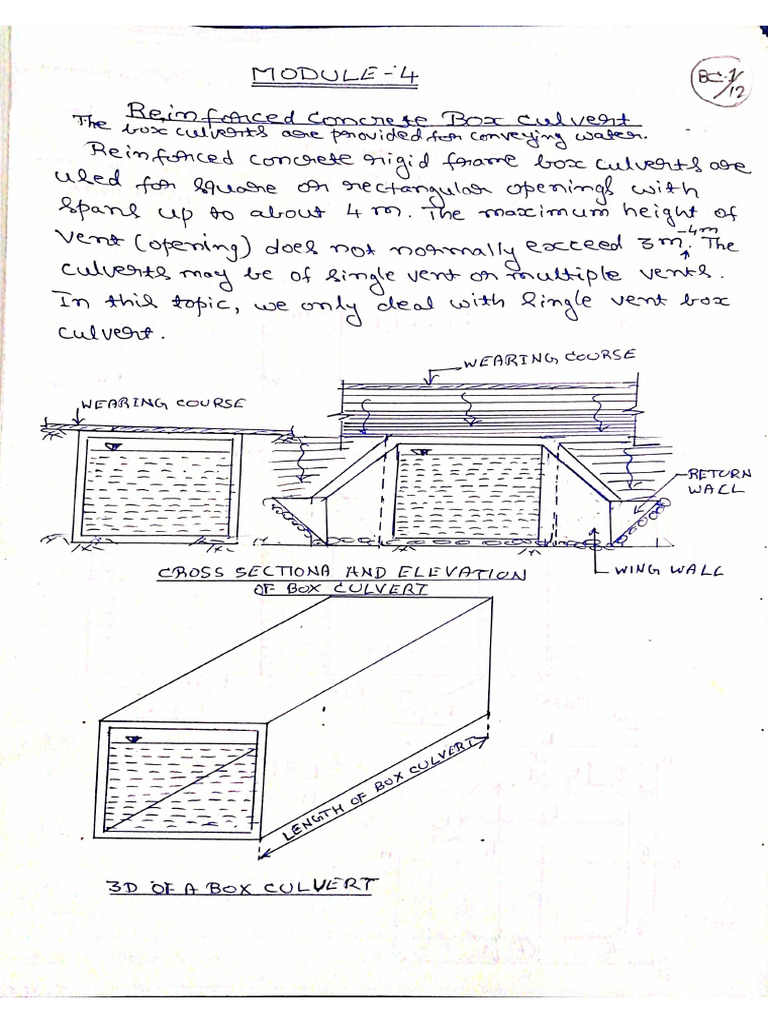 MODULE-4
BC-1/12
Reinforced Concrete Box Culvert
The box culverts are provided for conveying water.
Reinforced concrete rigid frame box culverts are
used for square or rectangular openings with
spans up to about 4m. The maximum height of
vent (opening) does not normally exceed 3m-4m. The
culverts may be of single vent or multiple vents.
In this topic, we only deal with single vent box
culvert.
WEARING COURSE
WEARING COURSE
RETURN
WALL
WING WALL
CROSS SECTIONA AND ELEVATION
OF BOX CULVERT
LENGTH OF BOX CULVERT
3D OF A BOX CULVERT